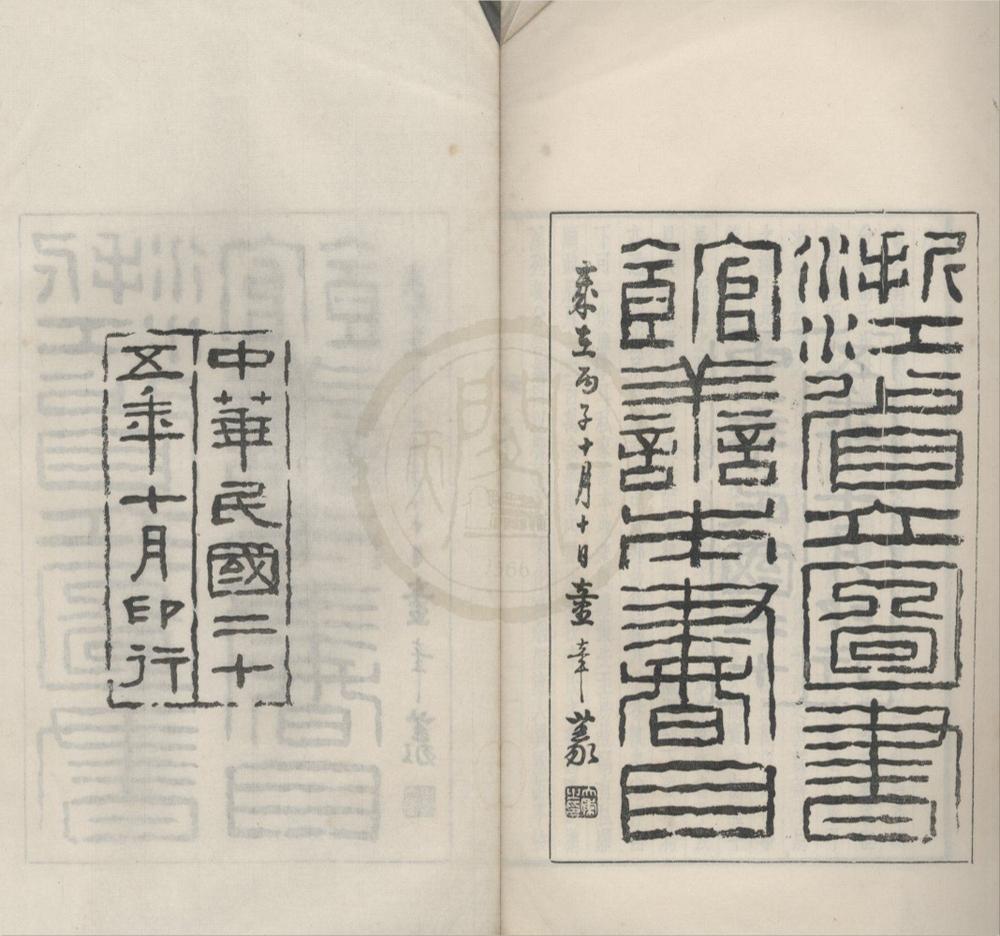 浙江省立圖書
館善本書目
歲在丙子十月十日篆
中華民國二十
五年十月印行
1566